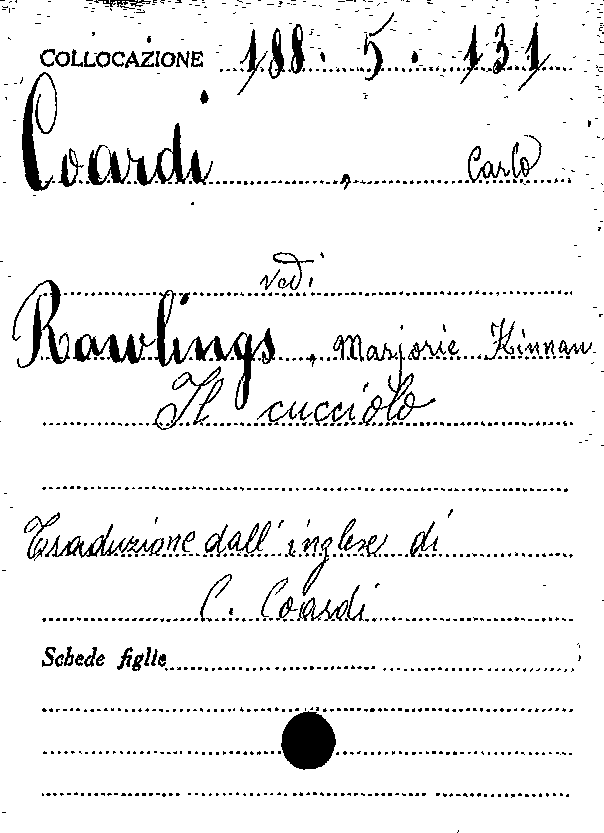 COLLOCAZIONE 188. 5. 131
Coardi, Carlo
vedi
Rawlings, Marjorie Kinnan
Il cucciolo
Traduzione dall'inglese di
C. Coardi
Schede figlie